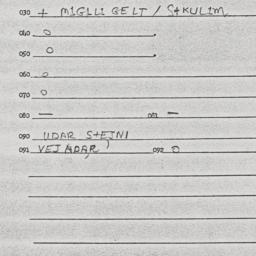 030 + MIGLLI GELT / S+KULIM
040 O
050 O
060 O
070 O
080 — 081 —
090 UDAR S+EJNI
091 VEJADAR 092 O